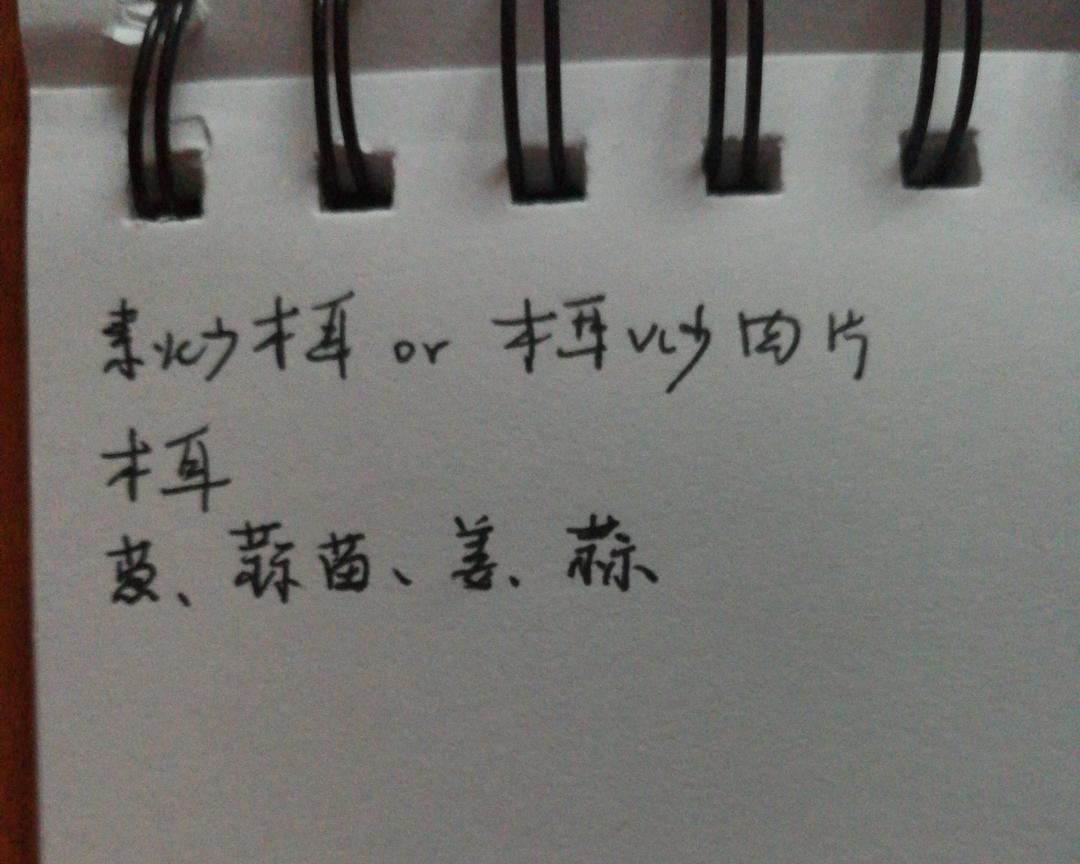 素炒木耳 or 木耳炒肉片
木耳
葱、蒜苗、姜、蒜、